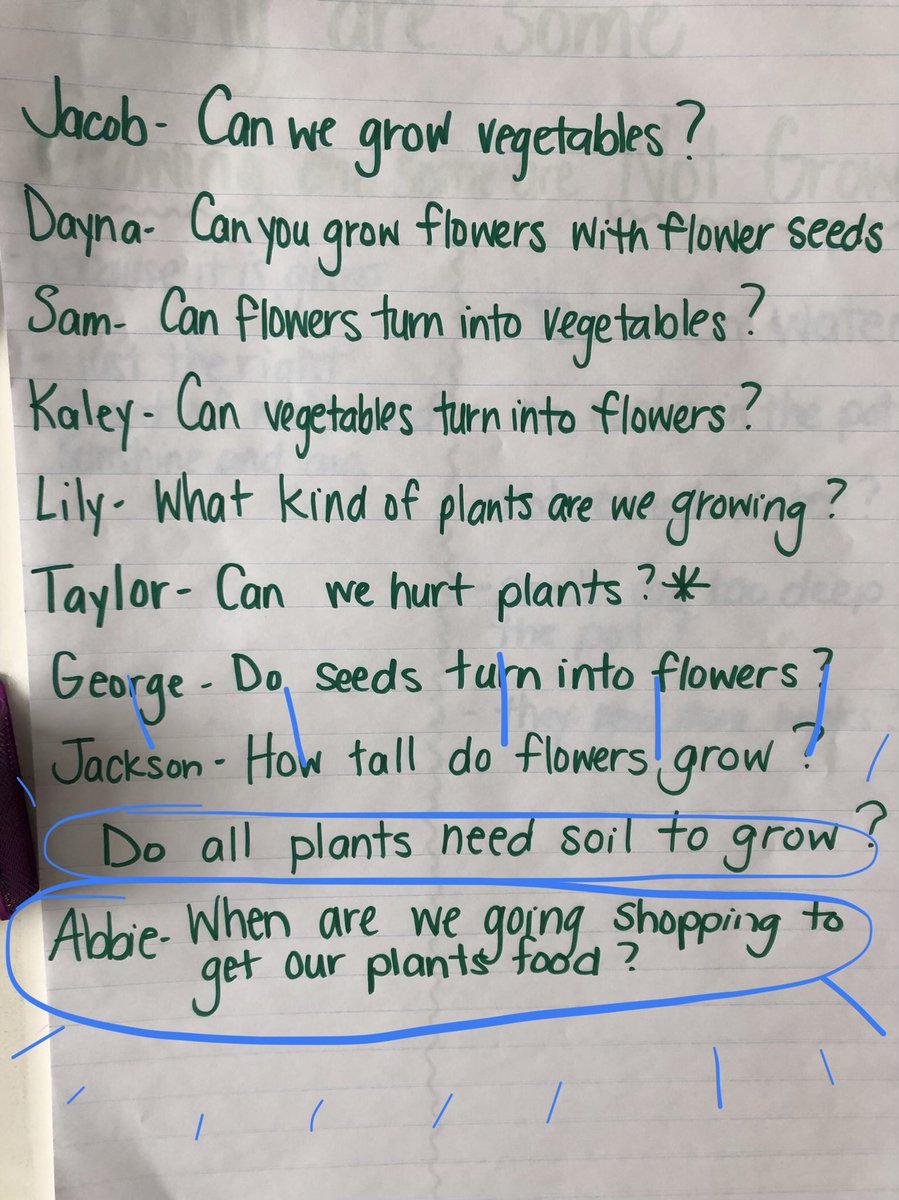 Jacob- Can we grow vegetables?
Dayna- Can you grow flowers with flower seeds
Sam- Can flowers turn into vegetables?
Kaley- Can vegetables turn into flowers?
Lily- What kind of plants are we growing?
Taylor- Can we hurt plants?*
George- Do seeds turn into flowers?
Jackson- How tall do flowers grow?
Do all plants need soil to grow?
Abbie- When are we going shopping to
get our plants food?